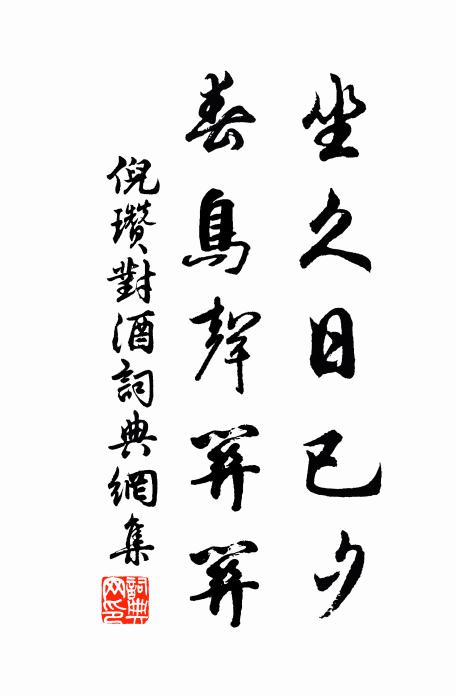 坐久日已夕
春鳥聲關關
倪瓚對酒詞典網集
詞典网印